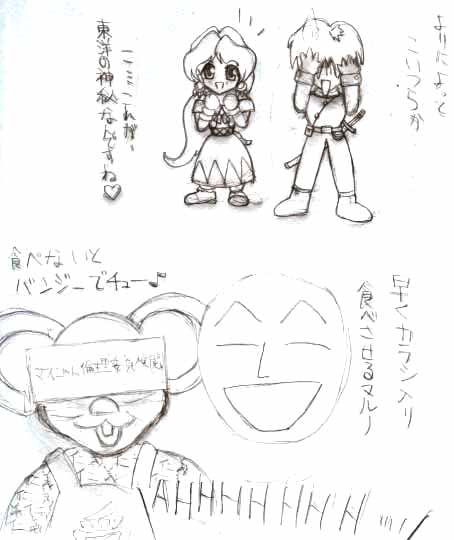 よりによって
こいつらか
こ、ここれが…
東洋の神秘なんですね♡
食べないと
バンジーでチュー♪
早くカラシ入り
食べさせるマルノ
倫理委員
AHHHHHHH